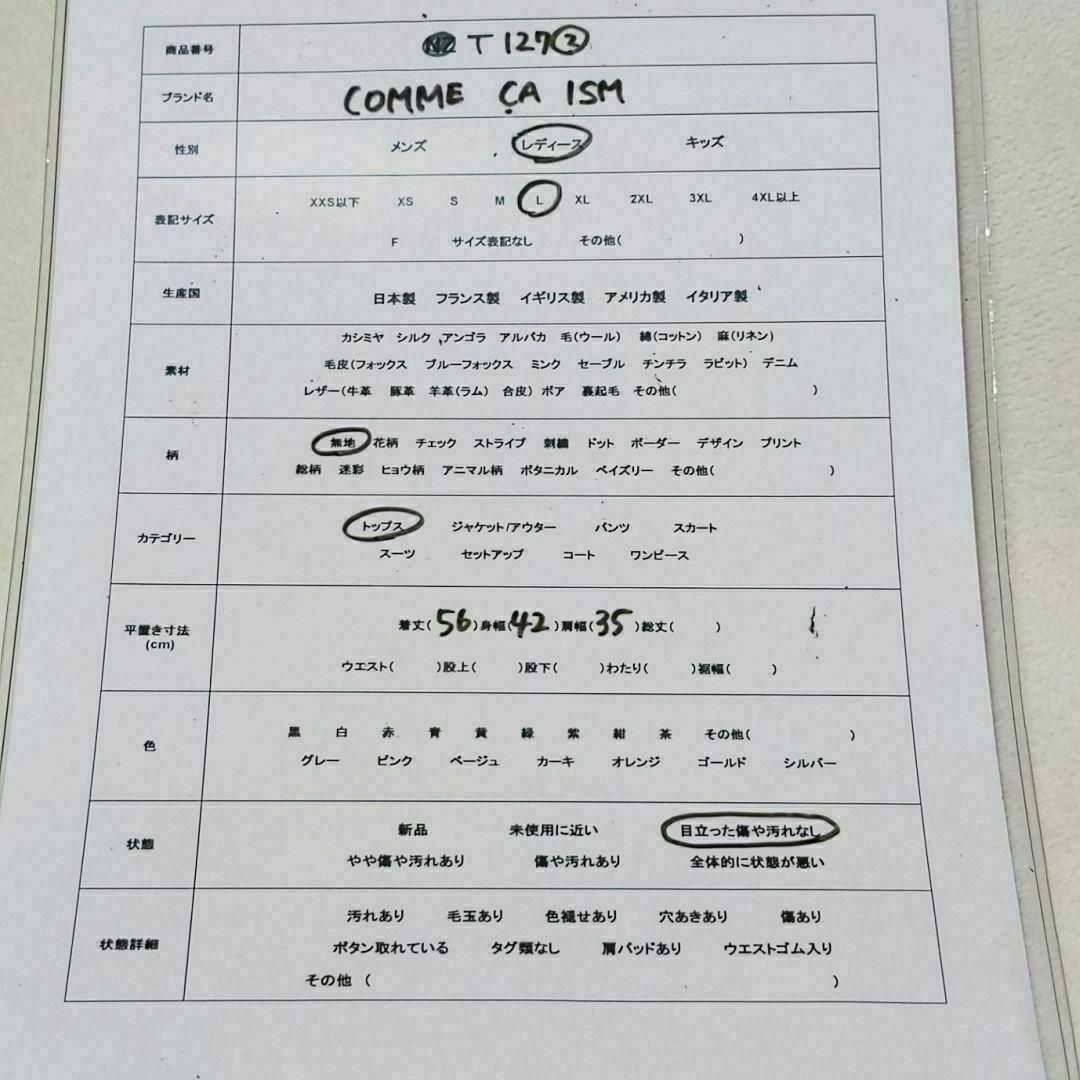 商品番号 T 127③
ブランド名 COMME ÇA ISM
性別 メンズ レディース キッズ
表記サイズ XXS以下 XS S M L XL 2XL 3XL 4XL以上
F サイズ表記なし その他( )
生産国 日本製 フランス製 イギリス製 アメリカ製 イタリア製
素材 カシミヤ シルク アンゴラ アルパカ 毛(ウール) 綿(コットン) 麻(リネン)
毛皮(フォックス ブルーフォックス ミンク セーブル チンチラ ラビット) デニム
レザー(牛革 豚革 羊革(ラム) 合皮) ボア 裏起毛 その他( )
柄 無地 花柄 チェック ストライプ 刺繍 ドット ボーダー デザイン プリント
総柄 迷彩 ヒョウ柄 アニマル柄 ボタニカル ペイズリー その他( )
カテゴリー トップス ジャケット/アウター パンツ スカート
スーツ セットアップ コート ワンピース
平置き寸法 (cm) 着丈( 56 )身幅( 42 )肩幅( 35 )総丈( )
ウエスト( )股上( )股下( )わたり( )裾幅( )
色 黒 白 赤 青 黄 緑 紫 紺 茶 その他( )
グレー ピンク ベージュ カーキ オレンジ ゴールド シルバー
状態 新品 未使用に近い 目立った傷や汚れなし
やや傷や汚れあり 傷や汚れあり 全体的に状態が悪い
状態詳細 汚れあり 毛玉あり 色褪せあり 穴あきあり 傷あり
ボタン取れている タグ類なし 肩パッドあり ウエストゴム入り
その他 ( )